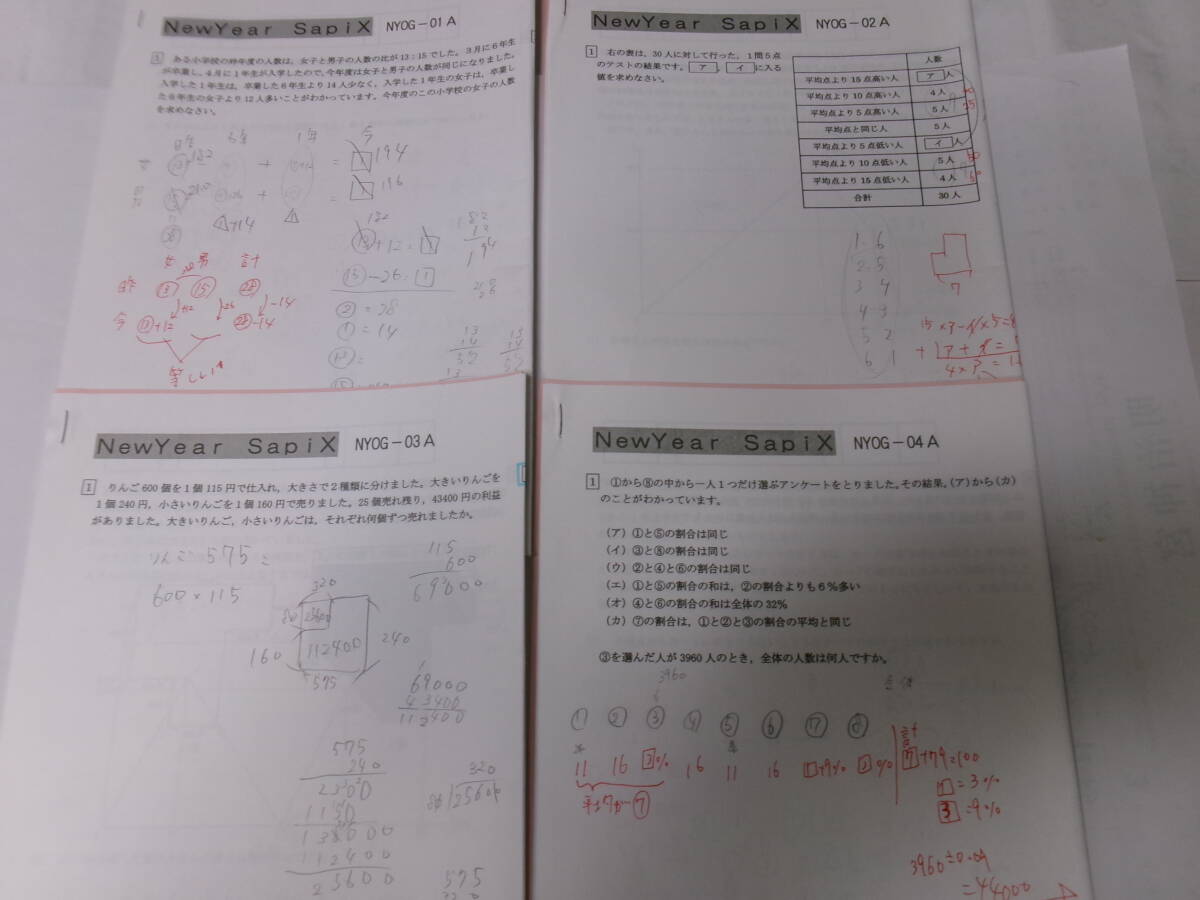 NewYear SapiX NYOG-01A
ある小学校の昨年度の人数は、女子と男子の人数の比が13:15でした。3月に6年生
が卒業し、4月に1年生が入学したので、今年度は女子と男子の人数が同じになりました。
入学した1年生は、卒業した6年生より14人少なく、入学した1年生の女子は、卒業し
た6年生の女子より12人多いことがわかっています。今年度のこの小学校の女子の人数
を求めなさい。
昨年 6年 1年 今
182 + = 1 194
210 + = 1 196
+14
182
+12=1
⑮-26 1
②=28
①=14
182
12
194
女 男 計
昨 ⑬ ⑮ ㉘
+12 26 -14
今 ⑬+12 ㉘-14
等しい
NewYear SapiX NYOG-02A
1 右の表は、30人に対して行った、1問5点
のテストの結果です。ア、イに入る
値を求めなさい。
人数
平均点より15点高い人 ア人
平均点より10点高い人 4人
平均点より5点高い人 5人
平均点と同じ人 5人
平均点より5点低い人 イ人
平均点より10点低い人 5人
平均点より15点低い人 4人
合計 30人
1 6
2 5
3 4
4 3
5 2
6 1
7
NewYear SapiX NYOG-03A
1 りんご600個を1個115円で仕入れ、大きさで2種類に分けました。大きいりんごを
1個240円、小さいりんごを1個160円で売りました。25個売れ残り、43400円の利益
がありました。大きいりんご、小さいりんごは、それぞれ何個ずつ売れましたか。
りんご575こ
600×115
115
600
69000
320
80 25600
160 112400 240
575
69000
43400
112400
575
240
23000
1150
138000
112400
25600
320
80 25600
575
320
NewYear SapiX NYOG-04A
1 ①から⑧の中から一人1つだけ選ぶアンケートをとりました。その結果、(ア)から(カ)
のことがわかっています。
(ア)①と⑤の割合は同じ
(イ)③と⑧の割合は同じ
(ウ)②と④と⑥の割合は同じ
(エ)①と⑤の割合の和は、②の割合よりも6%多い
(オ)④と⑥の割合の和は全体の32%
(カ)⑦の割合は、①と②と③の割合の平均と同じ
③を選んだ人が3960人のとき、全体の人数は何人ですか。
3960 全体
① ② ③ ④ ⑤ ⑥ ⑦ ⑧ 計
11 16 3% 16 11 16 1+9% 3% 7+79=100
平均が⑦
1=3%
3=9%
3960÷0.09
=44000